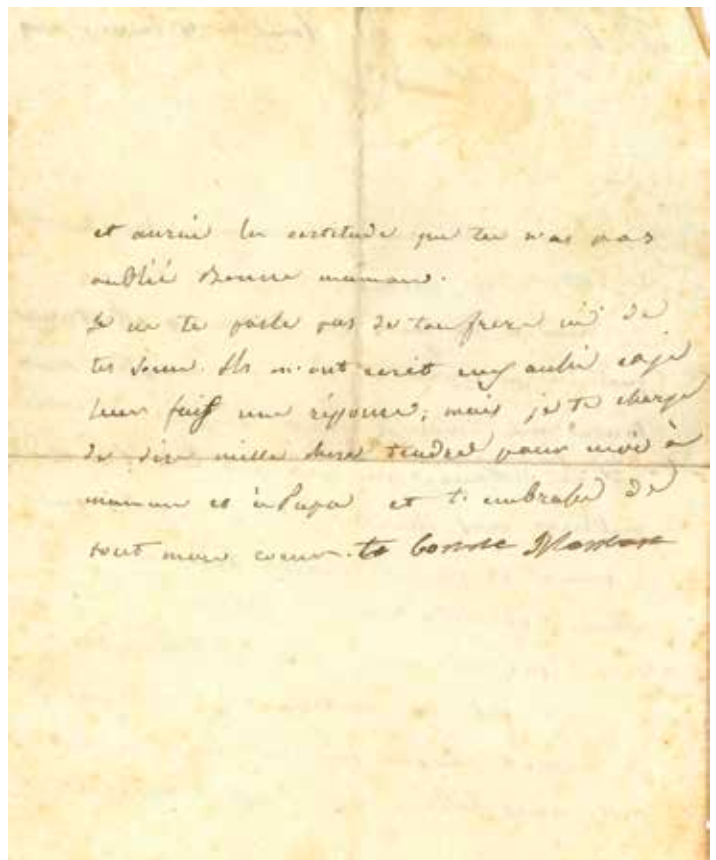 et aurai la certitude que tu n'as pas
oublié Bonne maman.
Je ne te parle pas de ton frere ni de
tes soeur. Ils m'ont ecrit
leur une réponse, mais je te charge
de dire mille chose tendres pour moi à
maman et à Papa et t'embrasse de
tout mon coeur. ta bonne Maman